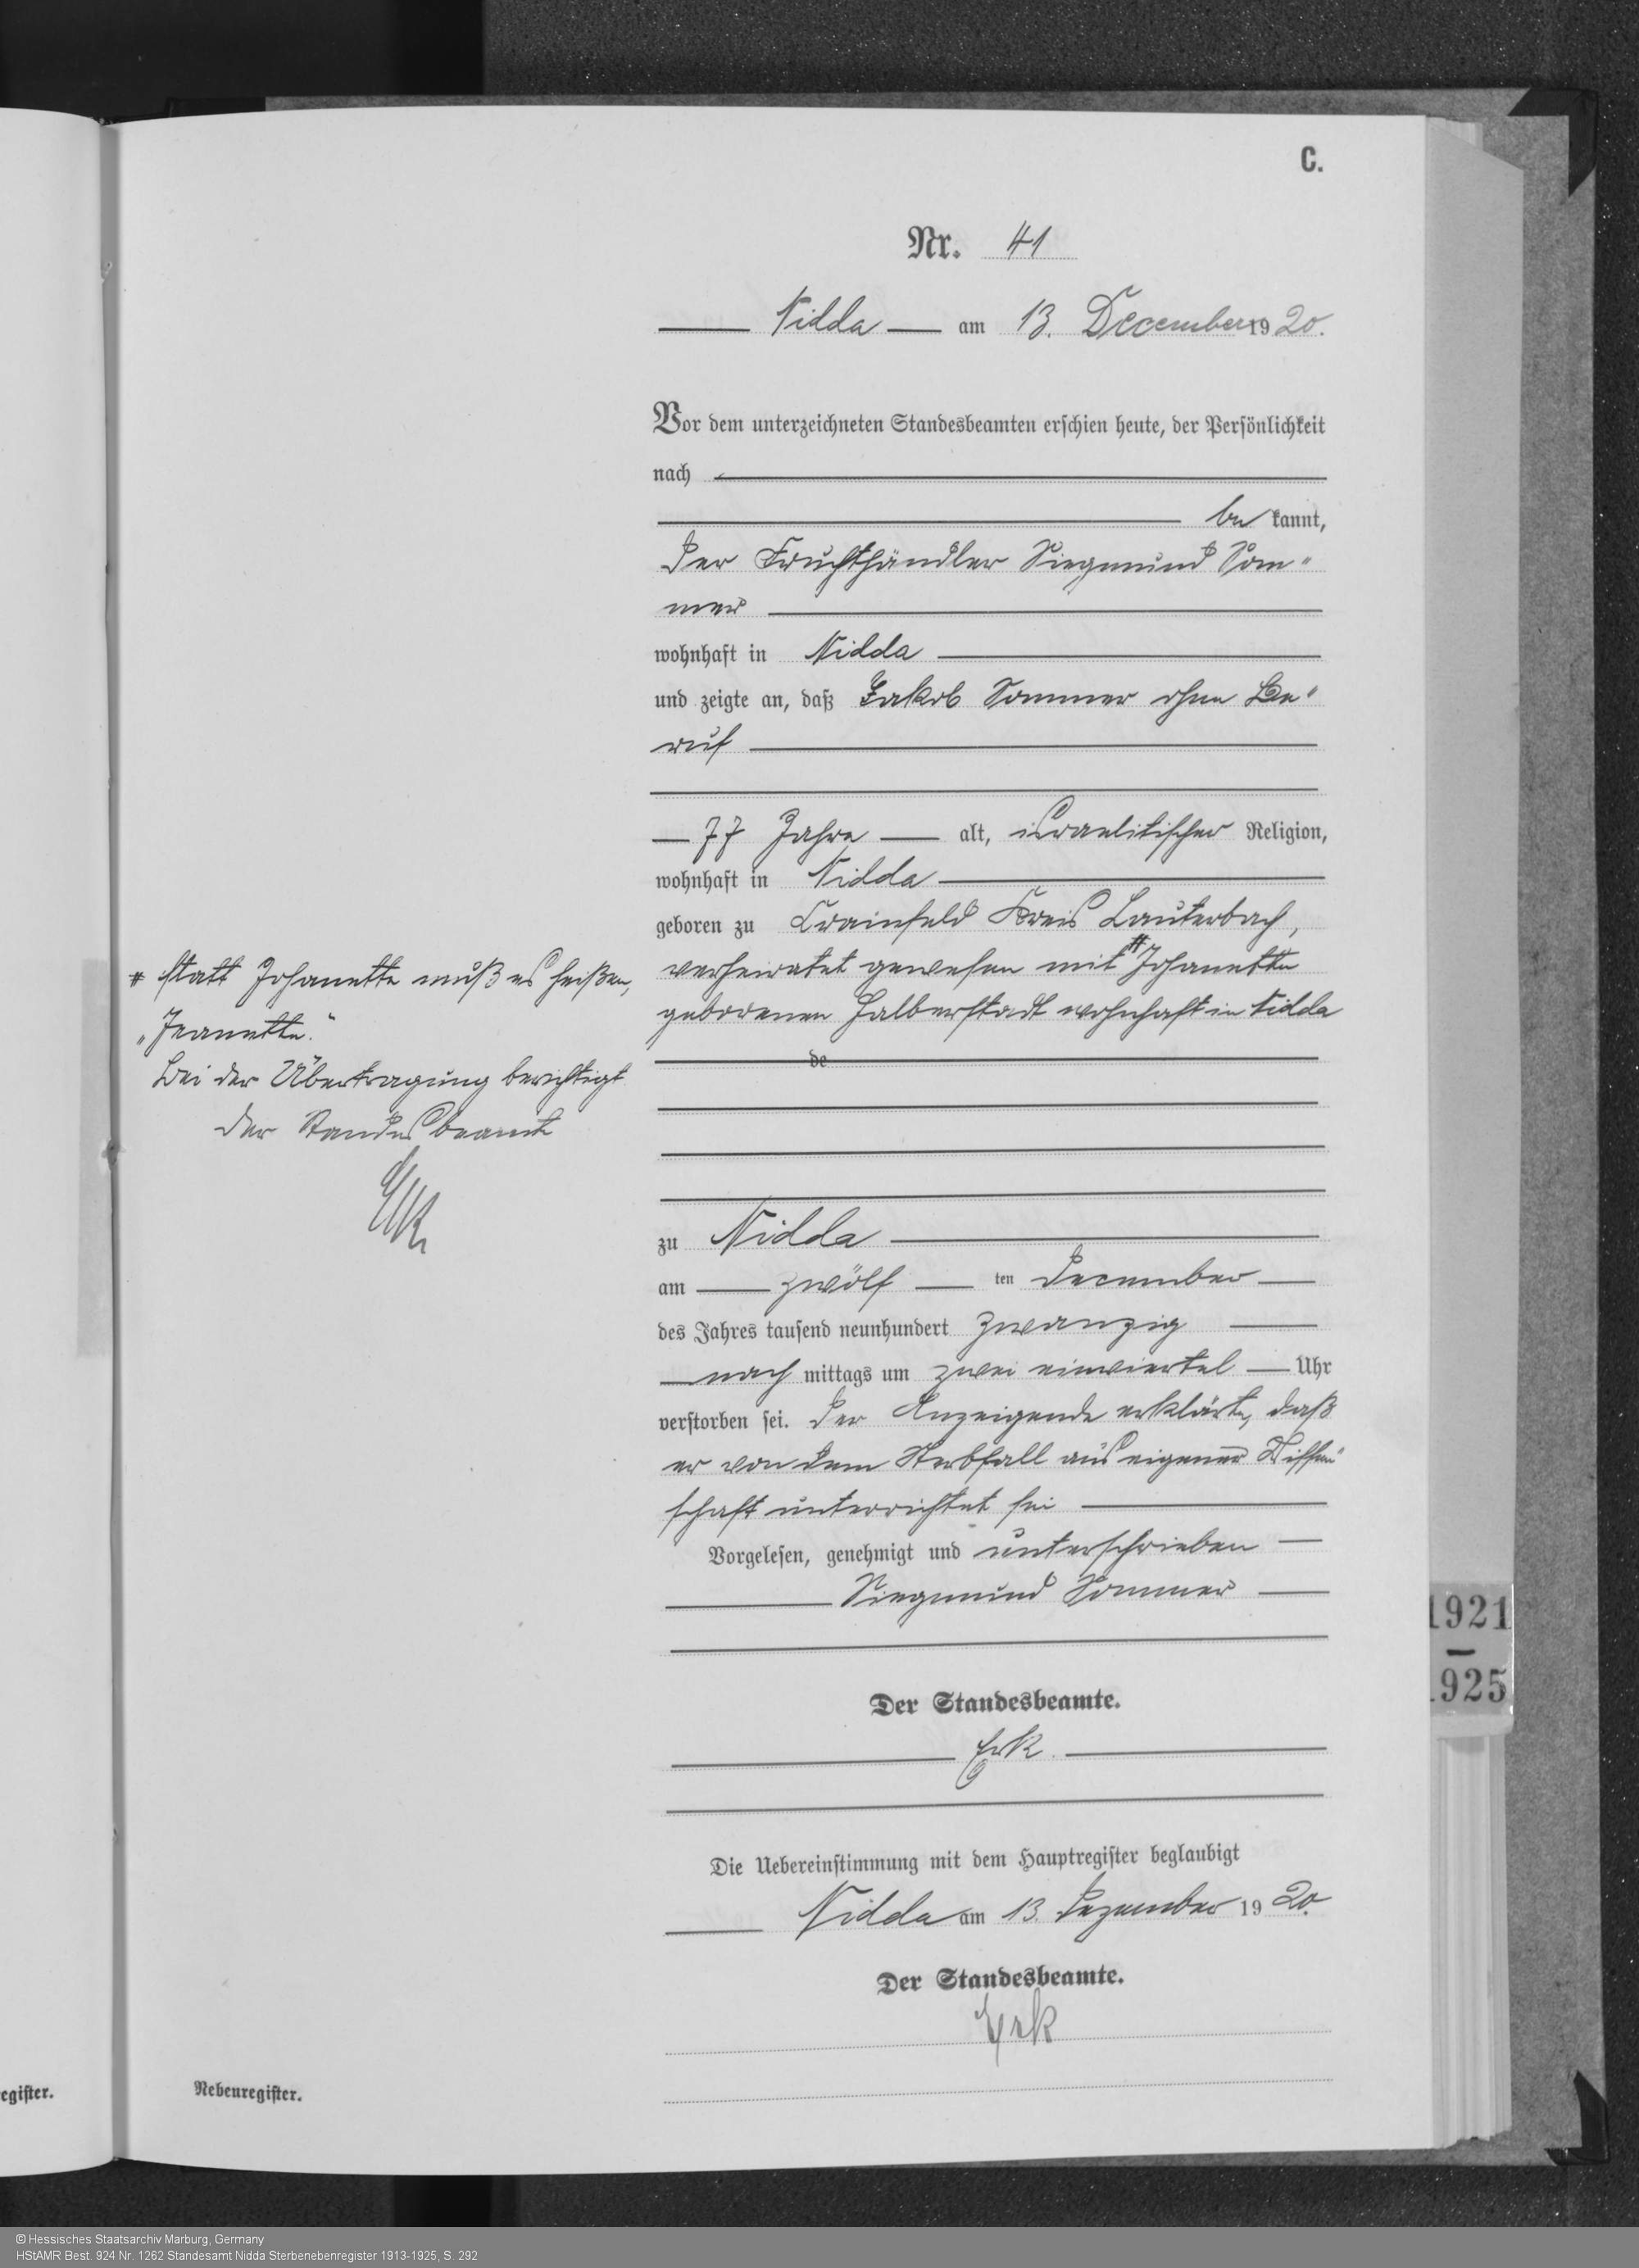 C.
Nr. 41
Nidda am 13. December 1920.
Vor dem unterzeichneten Standesbeamten erschien heute, der Persönlichkeit
nach
be kannt,
der Fruchthändler Siegmund Som-
mer
wohnhaft in Nidda
und zeigte an, daß Jakob Sommer ohne Be-
ruf
77 Jahre alt, israelitischer Religion,
wohnhaft in Nidda
geboren zu Crainfeld Kreis Lauterbach,
verheiratet gewesen mit # Johanette
geborenen Halberstadt wohnhaft in Nidda
de
# statt Johanette muß es heißen,
„Jeanette.“
Bei der Übertragung berichtigt
Der Standesbeamte
Erk
zu Nidda
am zwölf ten December
des Jahres tausend neunhundert zwanzig
nach mittags um zwei einviertel Uhr
verstorben sei. Der Anzeigende erklärte, daß
er von dem Sterbfall aus eigener Wissen-
schaft unterrichtet sei
Vorgelesen, genehmigt und unterschrieben
Siegmund Sommer
Der Standesbeamte.
Erk
Die Uebereinstimmung mit dem Hauptregister beglaubigt
Nidda am 13. Dezember 1920.
Der Standesbeamte.
Erk
egister.
Nebenregister.
1921
–
1925
© Hessisches Staatsarchiv Marburg, Germany
HStAMR Best. 924 Nr. 1262 Standesamt Nidda Sterbenebenregister 1913-1925, S. 292